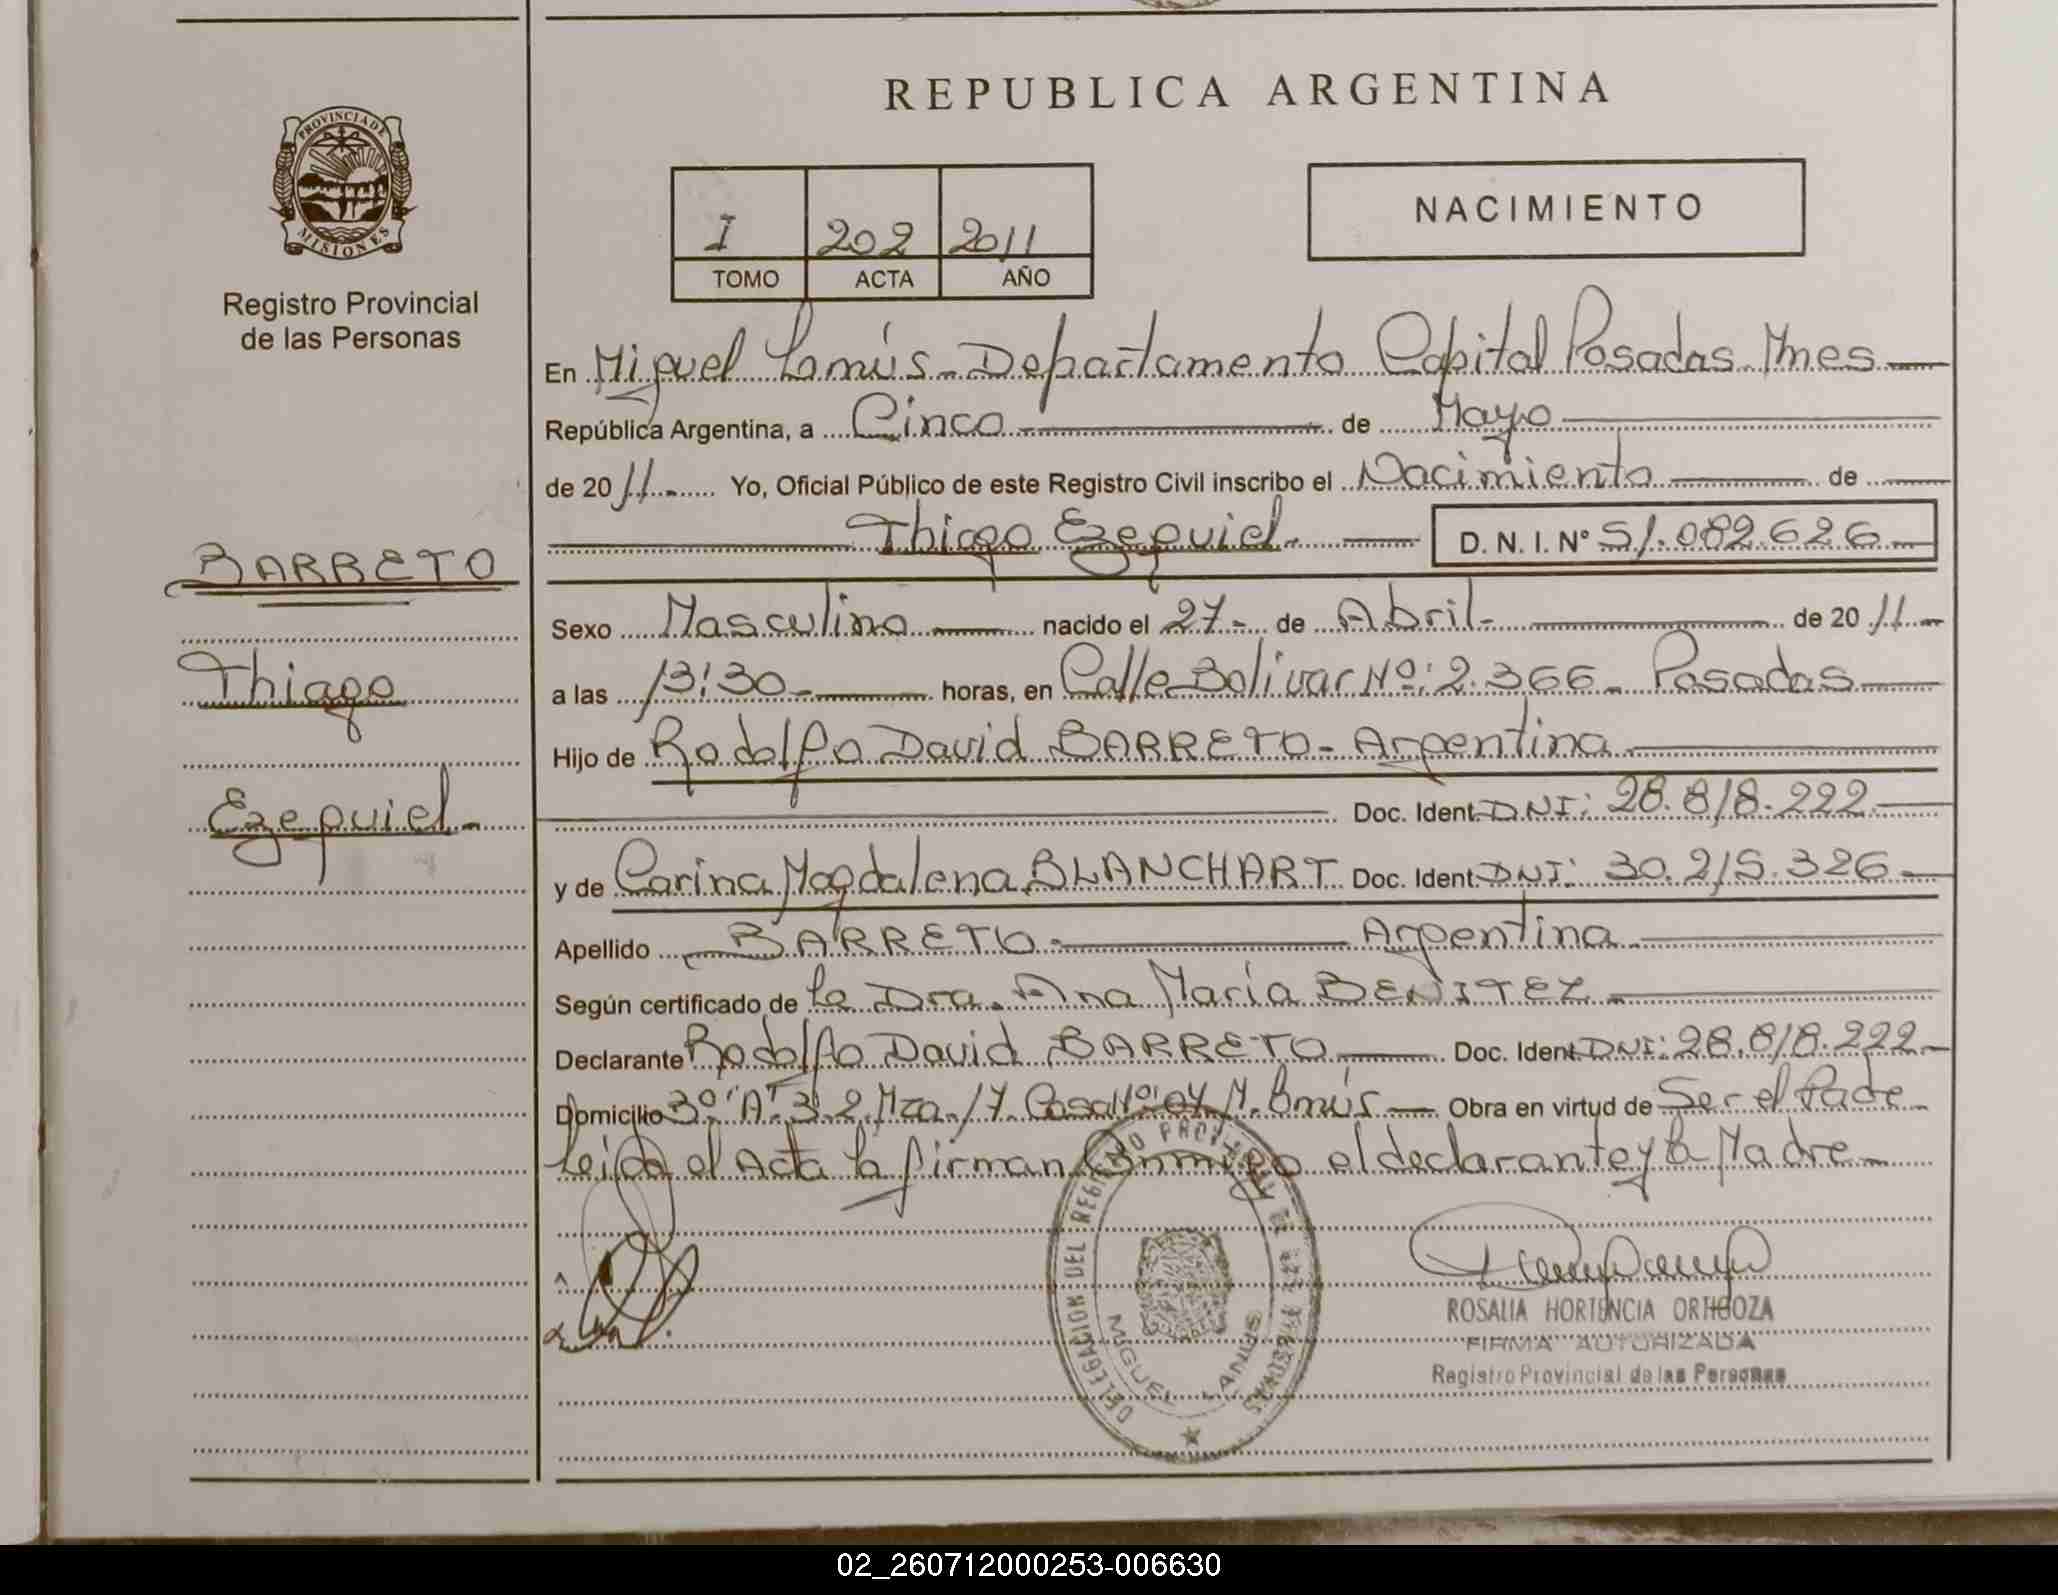 REPUBLICA ARGENTINA
PROVINCIA DE
MISIONES
Registro Provincial
de las Personas
I 202 2011
TOMO ACTA AÑO
NACIMIENTO
En Miguel Lanús - Departamento Capital Posadas. Mnes
República Argentina, a Cinco de Mayo
de 2011 Yo, Oficial Público de este Registro Civil inscribo el Nacimiento de
Thiago Ezequiel. D. N. I. Nº 51.082.626
BARRETO
Thiago
Ezequiel
Sexo Masculino nacido el 27 de Abril de 2011
a las 13:30 horas, en Calle Bolivar Nº: 2.366 Posadas
Hijo de Rodolfo David BARRETO - Argentina
Doc. Ident. DNI: 28.818.222
y de Carina Magdalena BLANCHART Doc. Ident. DNI: 30.215.326
Apellido BARRETO Argentina
Según certificado de la Dra. Ana María BENITEZ
Declarante Rodolfo David BARRETO Doc. Ident. DNI: 28.818.222
Domicilio Mza. 17 Casa Nº Obra en virtud de Ser el Padre
Leida el Acta la firman Conmigo el declarante y la Madre
DELEGACION DEL REGISTRO PROVINCIAL DE LAS PERSONAS
MIGUEL LANUS
ROSALIA HORTENCIA ORTIGOZA
FIRMA AUTORIZADA
Registro Provincial de las Personas
02_260712000253-006630